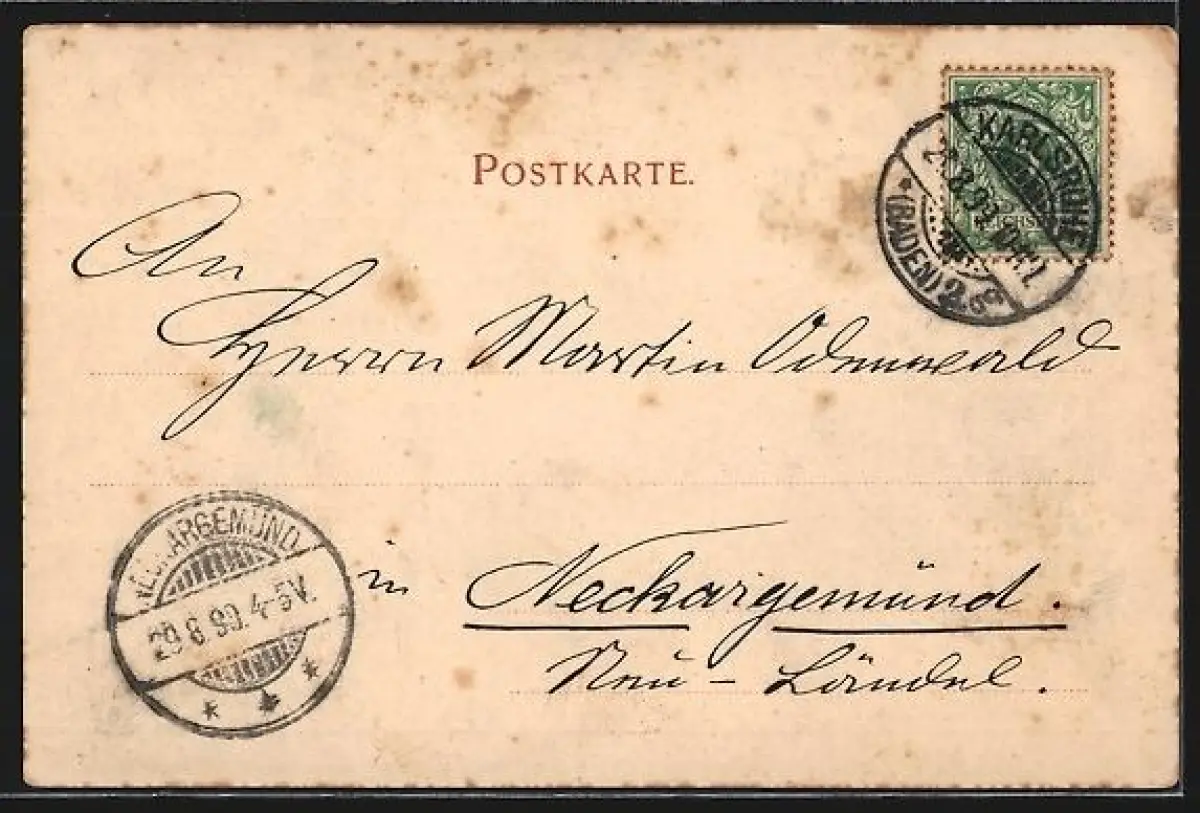 POSTKARTE.
KARLSRUHE
8.99.10-11
(BADEN) 2
An
Herrn Martin Odenwald
NECKARGEMÜND.
29.8.99.4-5V.
in Neckargemünd.
Neu-Ländel.